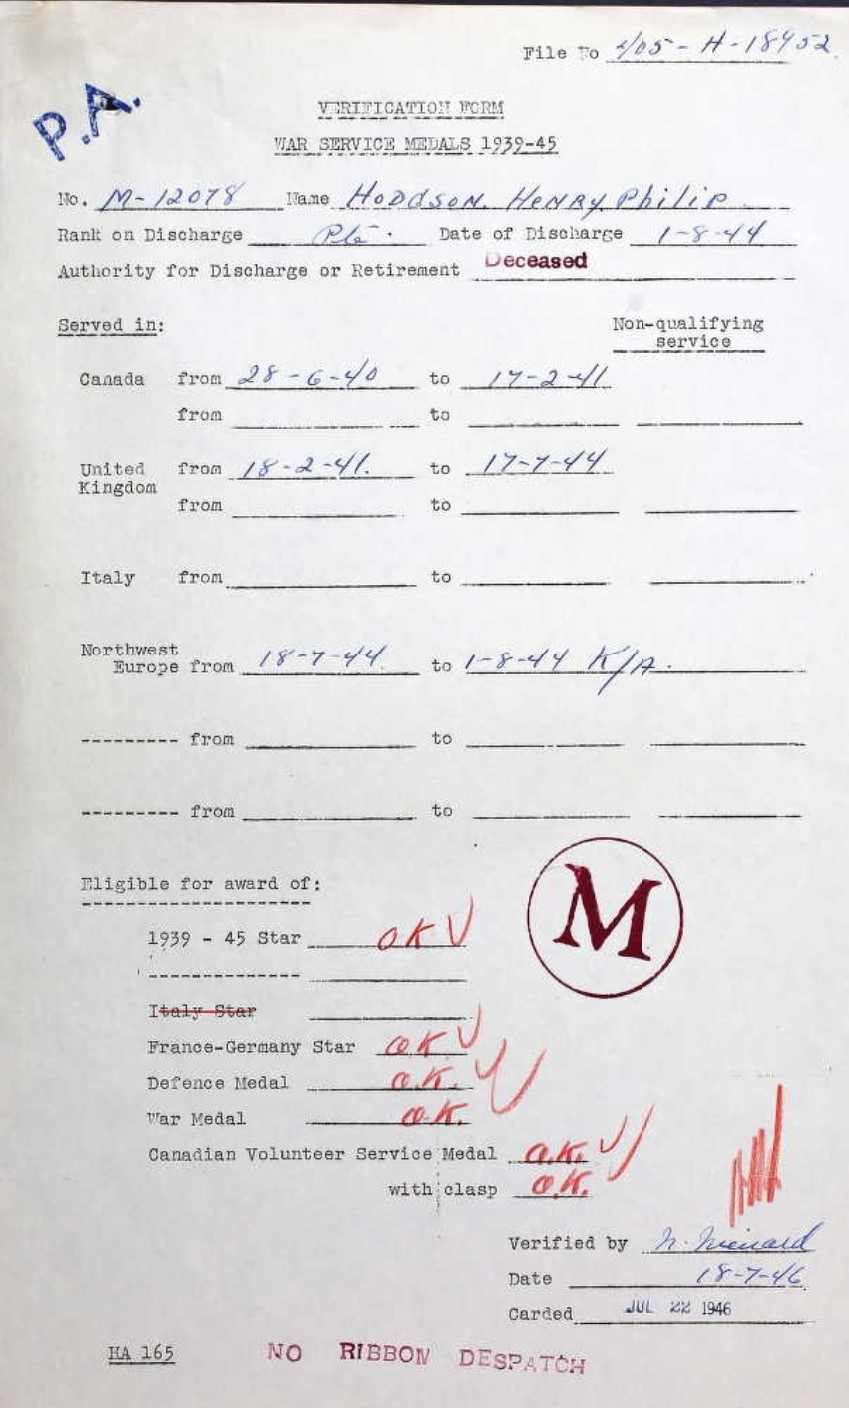 File No 405-H-18952
P.A.
VERIFICATION FORM
WAR SERVICE MEDALS 1939-45
No. M-12078 Name HODGSON. HENRY Philip
Rank on Discharge Pte. Date of Discharge 1-8-44
Authority for Discharge or Retirement Deceased
Served in: Non-qualifying
service
Canada from 28-6-40 to 17-2-41
from to
United from 18-2-41. to 17-7-44
Kingdom
from to
Italy from to
Northwest
Europe from 18-7-44 to 1-8-44 K/A.
--------- from to
--------- from to
Eligible for award of:
M
1939 - 45 Star OK
Italy Star
France-Germany Star OK
Defence Medal O.K.
War Medal O.K.
Canadian Volunteer Service Medal O.K.
with clasp O.K.
Verified by N.
Date 18-7-46
Carded JUL 22 1946
HA 165 NO RIBBON DESPATCH